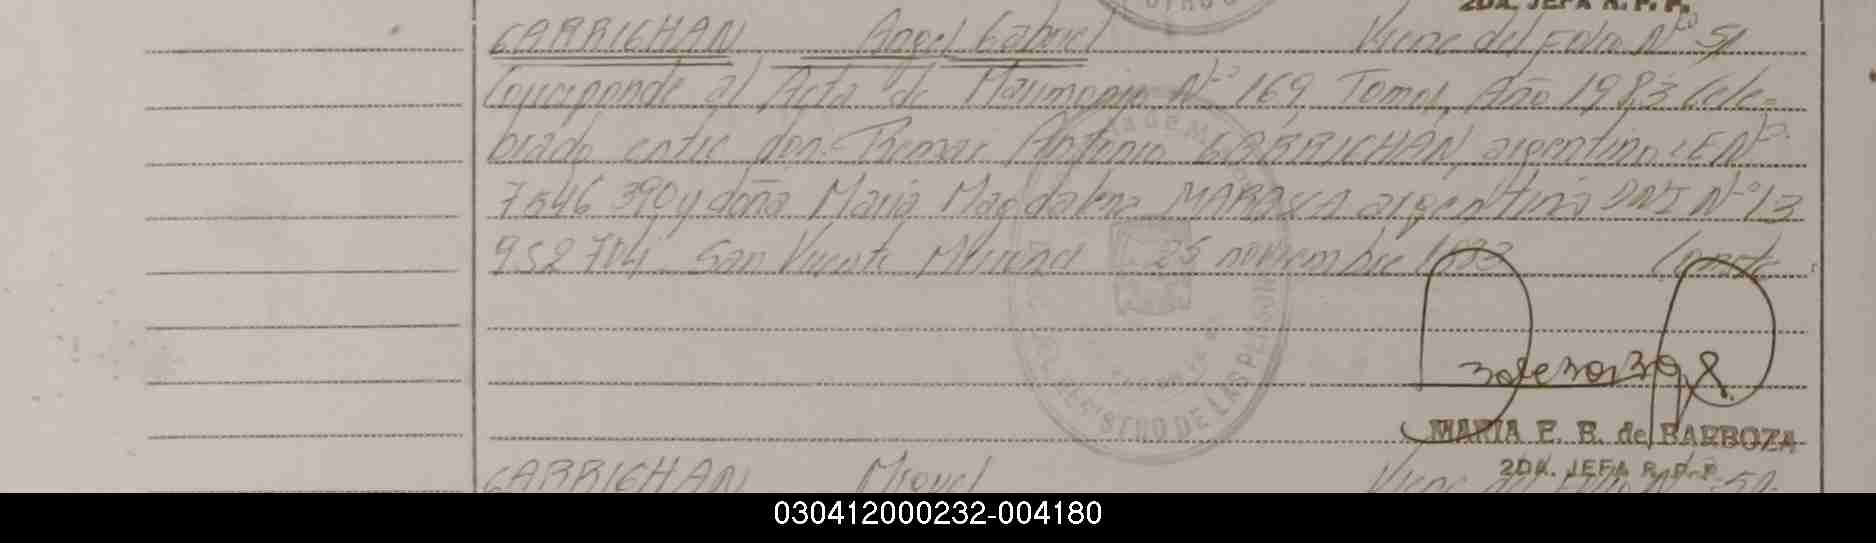 2DA. JEFA R. P. P.
GARRIGHAN Angel Gabriel Viene del Folio Nº 51
Corresponde al Acta de Matrimonio Nº 169, Tomo I, Año 1983 Cele-
brado entre don: Tomas Antonio GARRIGHAN, argentino LE Nº
7546390 y doña Maria Magdalena argentina DNI Nº 13
952704. San Vicente Misiones 25 noviembre 1983 Conste
REGISTRO DE LAS PERSONAS
MARIA E. B. de BARBOZA
2DA. JEFA R. P. P.
GARRIGHAN Miguel Viene del Folio Nº 51
030412000232-004180